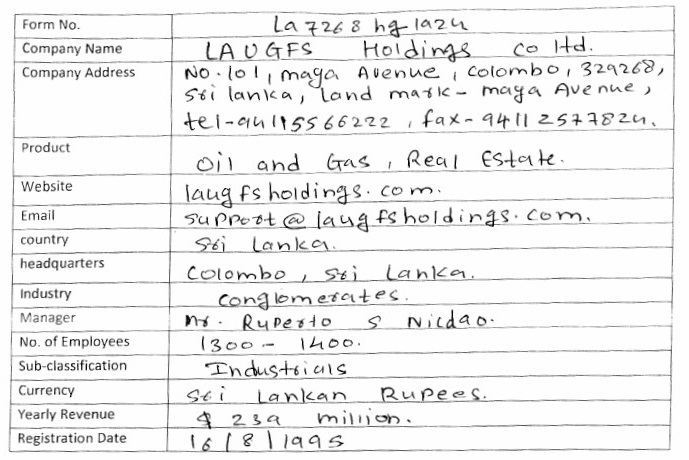 Form No. La7268hg1924
Company Name LAUGFS Holdings co ltd.
Company Address No.101, maga Avenue, colombo, 329268,
Sri lanka, land mark- maga Avenue,
tel-94115566222, fax-94112577824.
Product Oil and Gas, Real Estate.
Website laugfsholdings.com.
Email support@laugfsholdings.com.
country Sri Lanka.
headquarters Colombo, Sri Lanka.
Industry conglomerates.
Manager Mr. Ruperto S Nicdao.
No. of Employees 1300-1400.
Sub-classification Industrials
Currency Sri Lankan Rupees.
Yearly Revenue $ 239 million.
Registration Date 16/8/1995